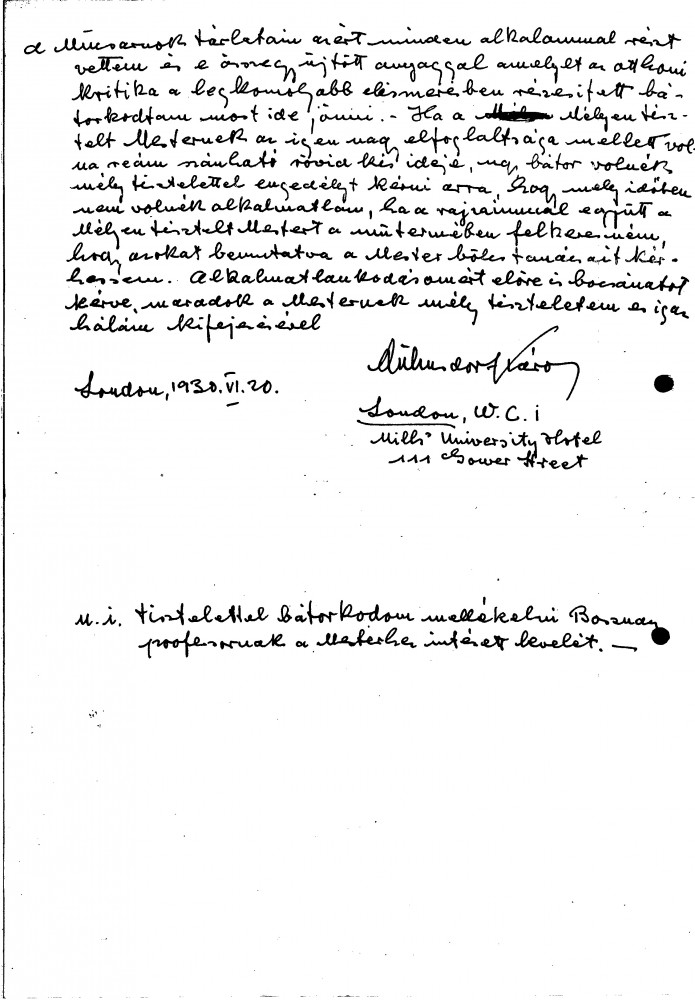 a Műcsarnok tárlatain azért minden alkalommal részt
vettem és e összegyűjtött anyaggal amelyet az otthoni
kritika a legkomolyabb elismerésben részesített bá-
torkodtam most ide jönni. - Ha a Mélyen tisz-
telt Mesternek az igen nagy elfoglaltsága mellett vol
na reám szánható rövid kis ideje, úgy bátor volnék
mély tisztelettel engedélyt kérni arra, hogy mely időben
nem volnék alkalmatlan, ha a rajzaimmal együtt a
Mélyen tisztelt Mestert a műtermében felkeresném,
hogy azokat bemutatva a Mester bölcs tanácsait kér-
hessem. Alkalmatlankodásomért előre is bocsánatot
kérve, maradok a Mesternek mély tiszteletem és igaz
hálám kifejezésével
Károly
London, 1930.VI.20.
London, W.C.1
Mills' University Hotel
111 Gower Street
u.i. tisztelettel bátorkodom mellékelni Bosznay
professornak a Mesterhez intézett levelét. —